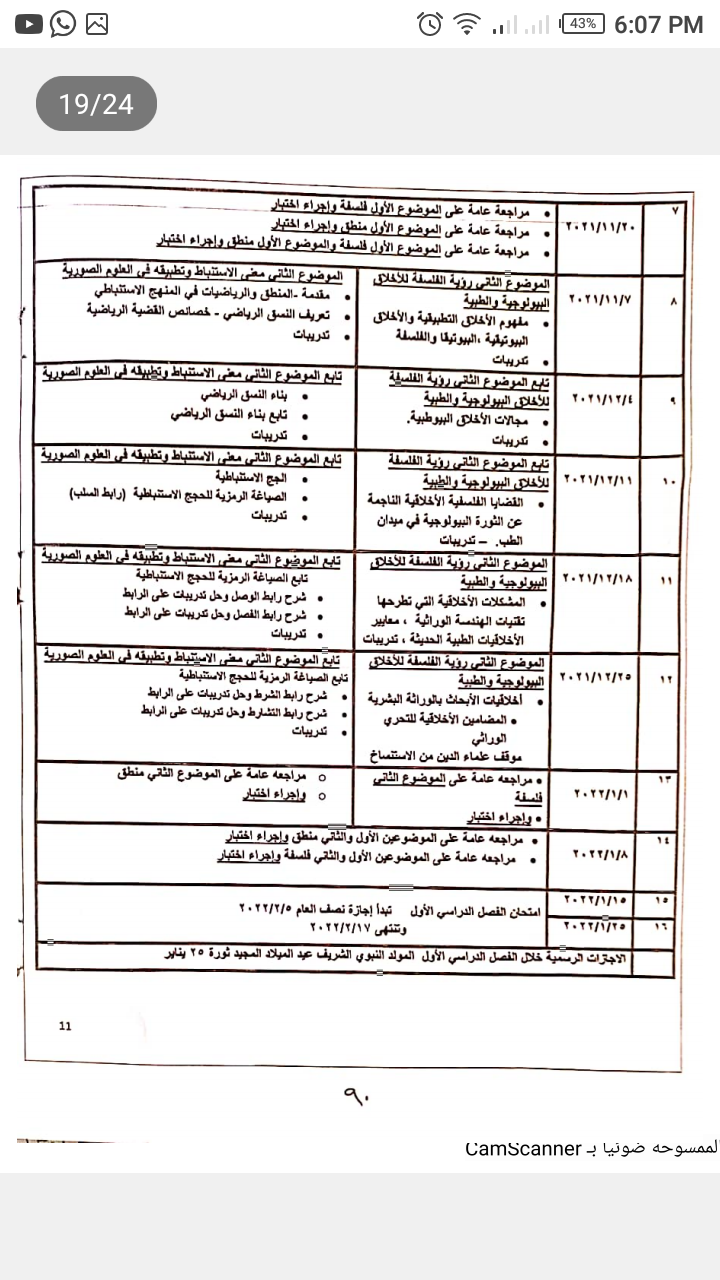 43% 6:07 PM
19/24
٧
٢٠٢١/١١/٢٠
• مراجعة عامة على الموضوع الأول فلسفة وإجراء اختبار
• مراجعة عامة على الموضوع الأول منطق وإجراء اختبار
• مراجعة عامة على الموضوع الأول فلسفة والموضوع الأول منطق وإجراء اختبار
٨
٢٠٢١/١١/٧
الموضوع الثاني رؤية الفلسفة للأخلاق
البيولوجية والطبية
• مفهوم الأخلاق التطبيقية والأخلاق
البيوتيقية ،البيوتيقا والفلسفة
• تدريبات
الموضوع الثاني معنى الاستنباط وتطبيقه في العلوم الصورية
• مقدمة -المنطق والرياضيات في المنهج الاستنباطي
• تعريف النسق الرياضي - خصائص القضية الرياضية
• تدريبات
٩
٢٠٢١/١٢/٤
تابع الموضوع الثاني رؤية الفلسفة
للأخلاق البيولوجية والطبية
• مجالات الأخلاق البيوطبية.
• تدريبات
تابع الموضوع الثاني معنى الاستنباط وتطبيقه في العلوم الصورية
• بناء النسق الرياضي
• تابع بناء النسق الرياضي
• تدريبات
١٠
٢٠٢١/١٢/١١
تابع الموضوع الثاني رؤية الفلسفة
للأخلاق البيولوجية والطبية
• القضايا الفلسفية الأخلاقية الناجمة
عن الثورة البيولوجية في ميدان
الطب. – تدريبات
تابع الموضوع الثاني معنى الاستنباط وتطبيقه في العلوم الصورية
• الحج الاستنباطية
• الصياغة الرمزية للحجج الاستنباطية (رابط السلب)
• تدريبات
١١
٢٠٢١/١٢/١٨
الموضوع الثاني رؤية الفلسفة للأخلاق
البيولوجية والطبية
• المشكلات الأخلاقية التي تطرحها
تقنيات الهندسة الوراثية ، معايير
الأخلاقيات الطبية الحديثة ، تدريبات
تابع الموضوع الثاني معنى الاستنباط وتطبيقه في العلوم الصورية
تابع الصياغة الرمزية للحجج الاستنباطية
• شرح رابط الوصل وحل تدريبات على الرابط
• شرح رابط الفصل وحل تدريبات على الرابط
• تدريبات
١٢
٢٠٢١/١٢/٢٥
الموضوع الثاني رؤية الفلسفة للأخلاق
البيولوجية والطبية
• أخلاقيات الأبحاث بالوراثة البشرية
• المضامين الأخلاقية للتحري
الوراثي
موقف علماء الدين من الاستنساخ
تابع الموضوع الثاني معنى الاستنباط وتطبيقه في العلوم الصورية
تابع الصياغة الرمزية للحجج الاستنباطية
• شرح رابط الشرط وحل تدريبات على الرابط
• شرح رابط التشارط وحل تدريبات على الرابط
• تدريبات
١٣
٢٠٢٢/١/١
• مراجعه عامة على الموضوع الثاني
فلسفة
• وإجراء اختبار
○ مراجعه عامة على الموضوع الثاني منطق
○ وإجراء اختبار
١٤
٢٠٢٢/١/٨
• مراجعه عامة على الموضوعين الأول والثاني منطق وإجراء اختبار
• مراجعه عامة على الموضوعين الأول والثاني فلسفة وإجراء اختبار
١٥
٢٠٢٢/١/١٥
١٦
٢٠٢٢/١/٢٥
امتحان الفصل الدراسي الأول تبدأ إجازة نصف العام ٢٠٢٢/٢/٥
وتنتهى ٢٠٢٢/٢/١٧
الاجازات الرسمية خلال الفصل الدراسي الأول المولد النبوي الشريف عيد الميلاد المجيد ثورة ٢٥ يناير
11
٩٠
الممسوحة ضوئيا بـ CamScanner